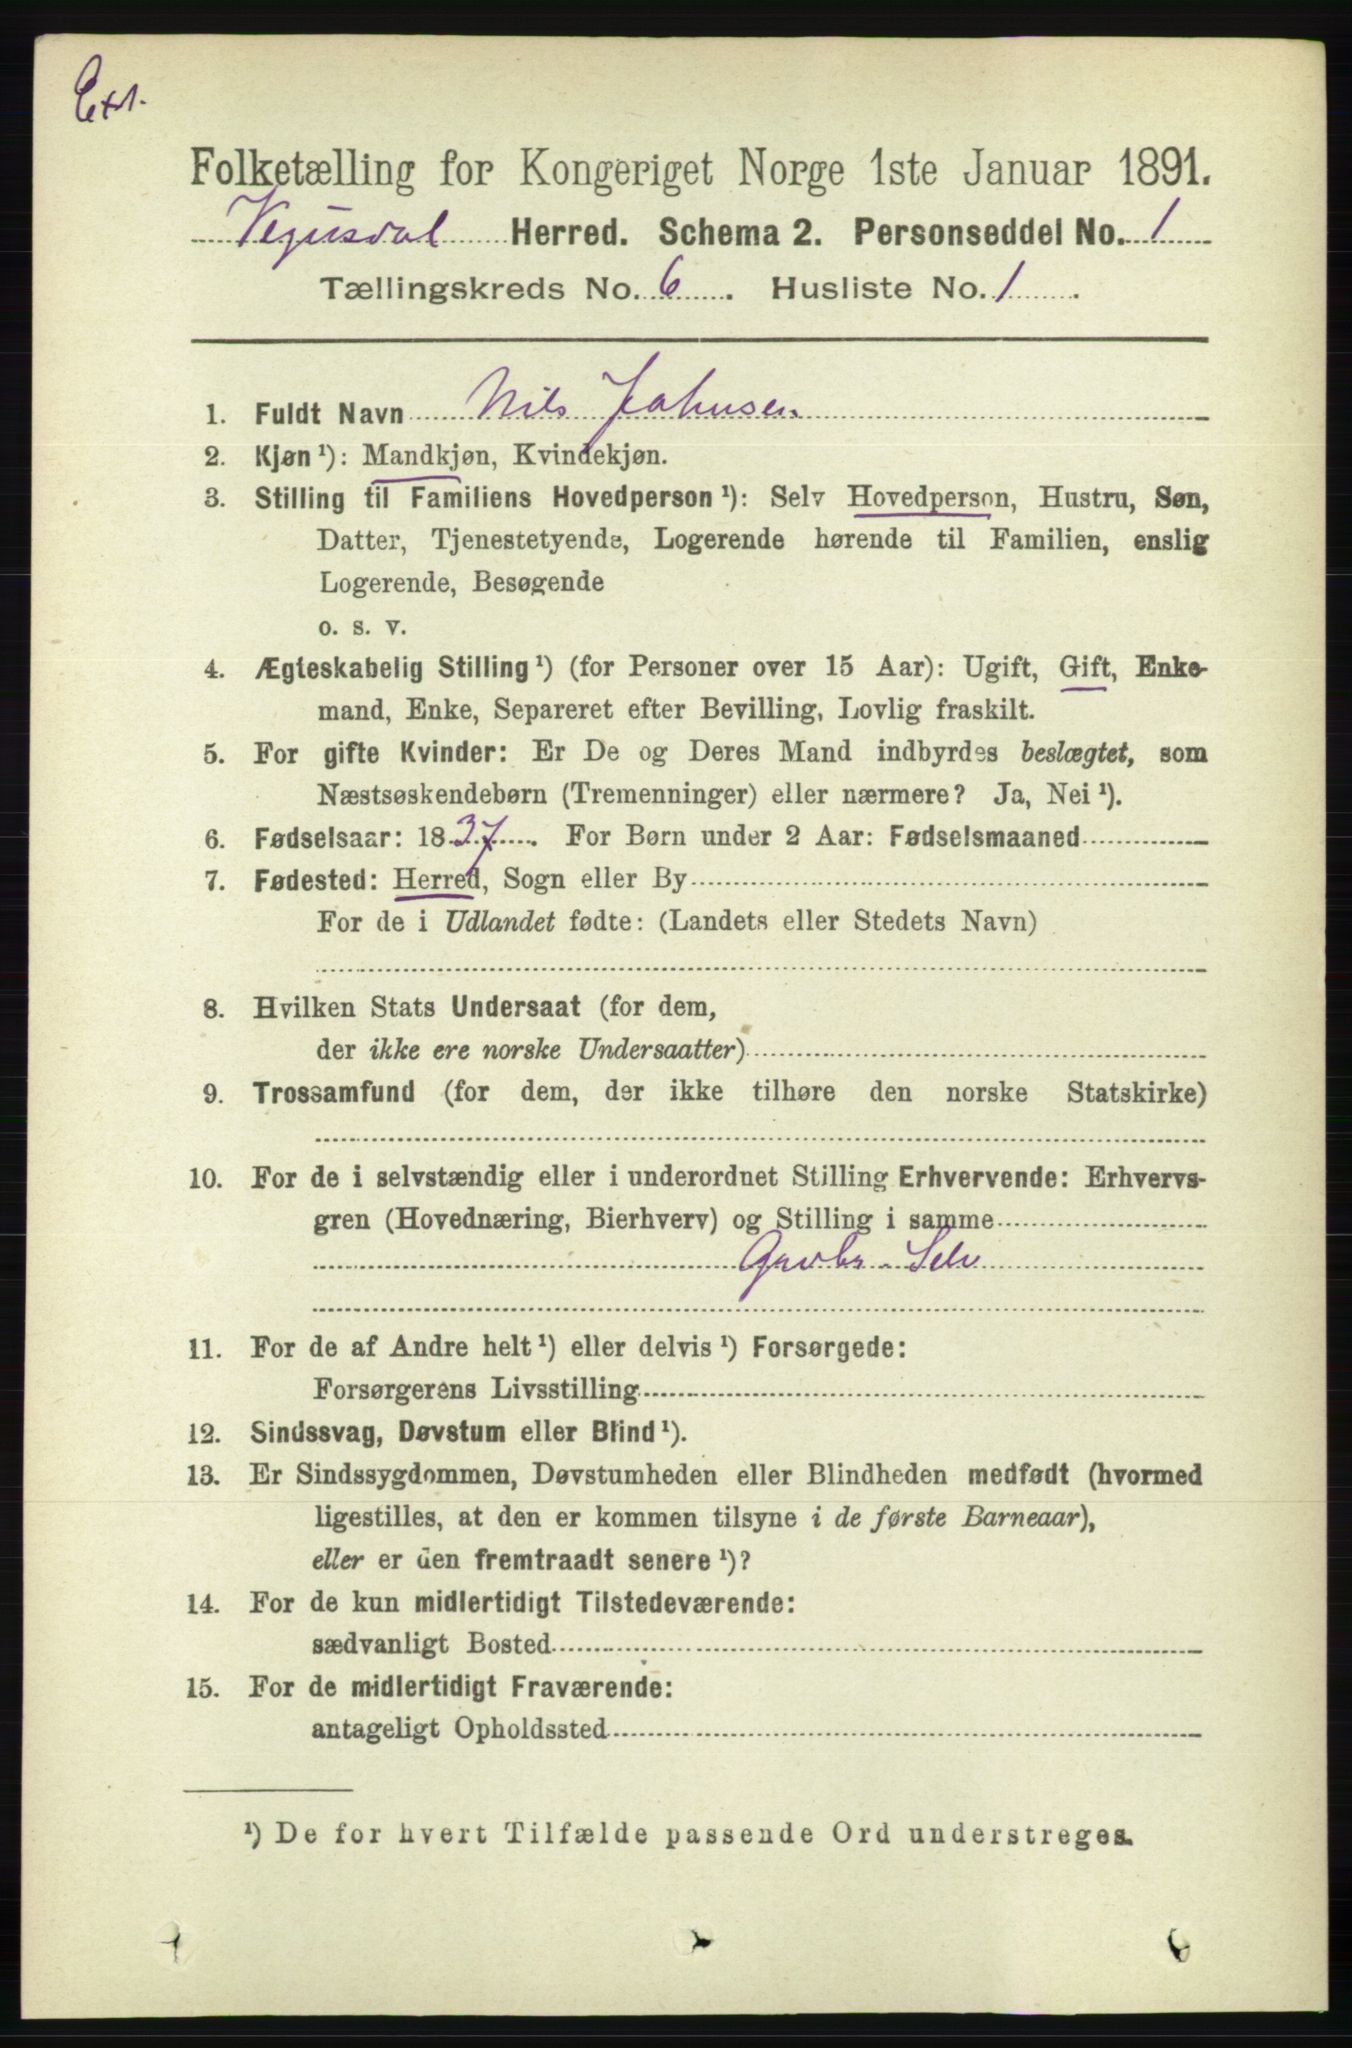 Ext.
Folketælling for Kongeriget Norge 1ste Januar 1891.
Vegusdal Herred. Schema 2. Personseddel No. 1
Tællingskreds No. 6. Husliste No. 1.
1. Fuldt Navn Nils Jahnsen
2. Kjøn ¹): Mandkjøn, Kvindekjøn.
3. Stilling til Familiens Hovedperson ¹): Selv Hovedperson, Hustru, Søn,
Datter, Tjenestetyende, Logerende hørende til Familien, enslig
Logerende, Besøgende
o. s. v.
4. Ægteskabelig Stilling ¹) (for Personer over 15 Aar): Ugift, Gift, Enke-
mand, Enke, Separeret efter Bevilling, Lovlig fraskilt.
5. For gifte Kvinder: Er De og Deres Mand indbyrdes beslægtet, som
Næstsøskendebørn (Tremenninger) eller nærmere? Ja, Nei ¹).
6. Fødselsaar: 1837. For Børn under 2 Aar: Fødselsmaaned
7. Fødested: Herred, Sogn eller By
For de i Udlandet fødte: (Landets eller Stedets Navn)
8. Hvilken Stats Undersaat (for dem,
der ikke ere norske Undersaatter)
9. Trossamfund (for dem, der ikke tilhøre den norske Statskirke)
10. For de i selvstændig eller i underordnet Stilling Erhvervende: Erhvervs-
gren (Hovednæring, Bierhverv) og Stilling i samme
Gaarbr. Selv
11. For de af Andre helt ¹) eller delvis ¹) Forsørgede:
Forsørgerens Livsstilling
12. Sindssvag, Døvstum eller Blind ¹).
13. Er Sindssygdommen, Døvstumheden eller Blindheden medfødt (hvormed
ligestilles, at den er kommen tilsyne i de første Barneaar),
eller er den fremtraadt senere ¹)?
14. For de kun midlertidigt Tilstedeværende:
sædvanligt Bosted
15. For de midlertidigt Fraværende:
antageligt Opholdssted
¹) De for hvert Tilfælde passende Ord understreges.